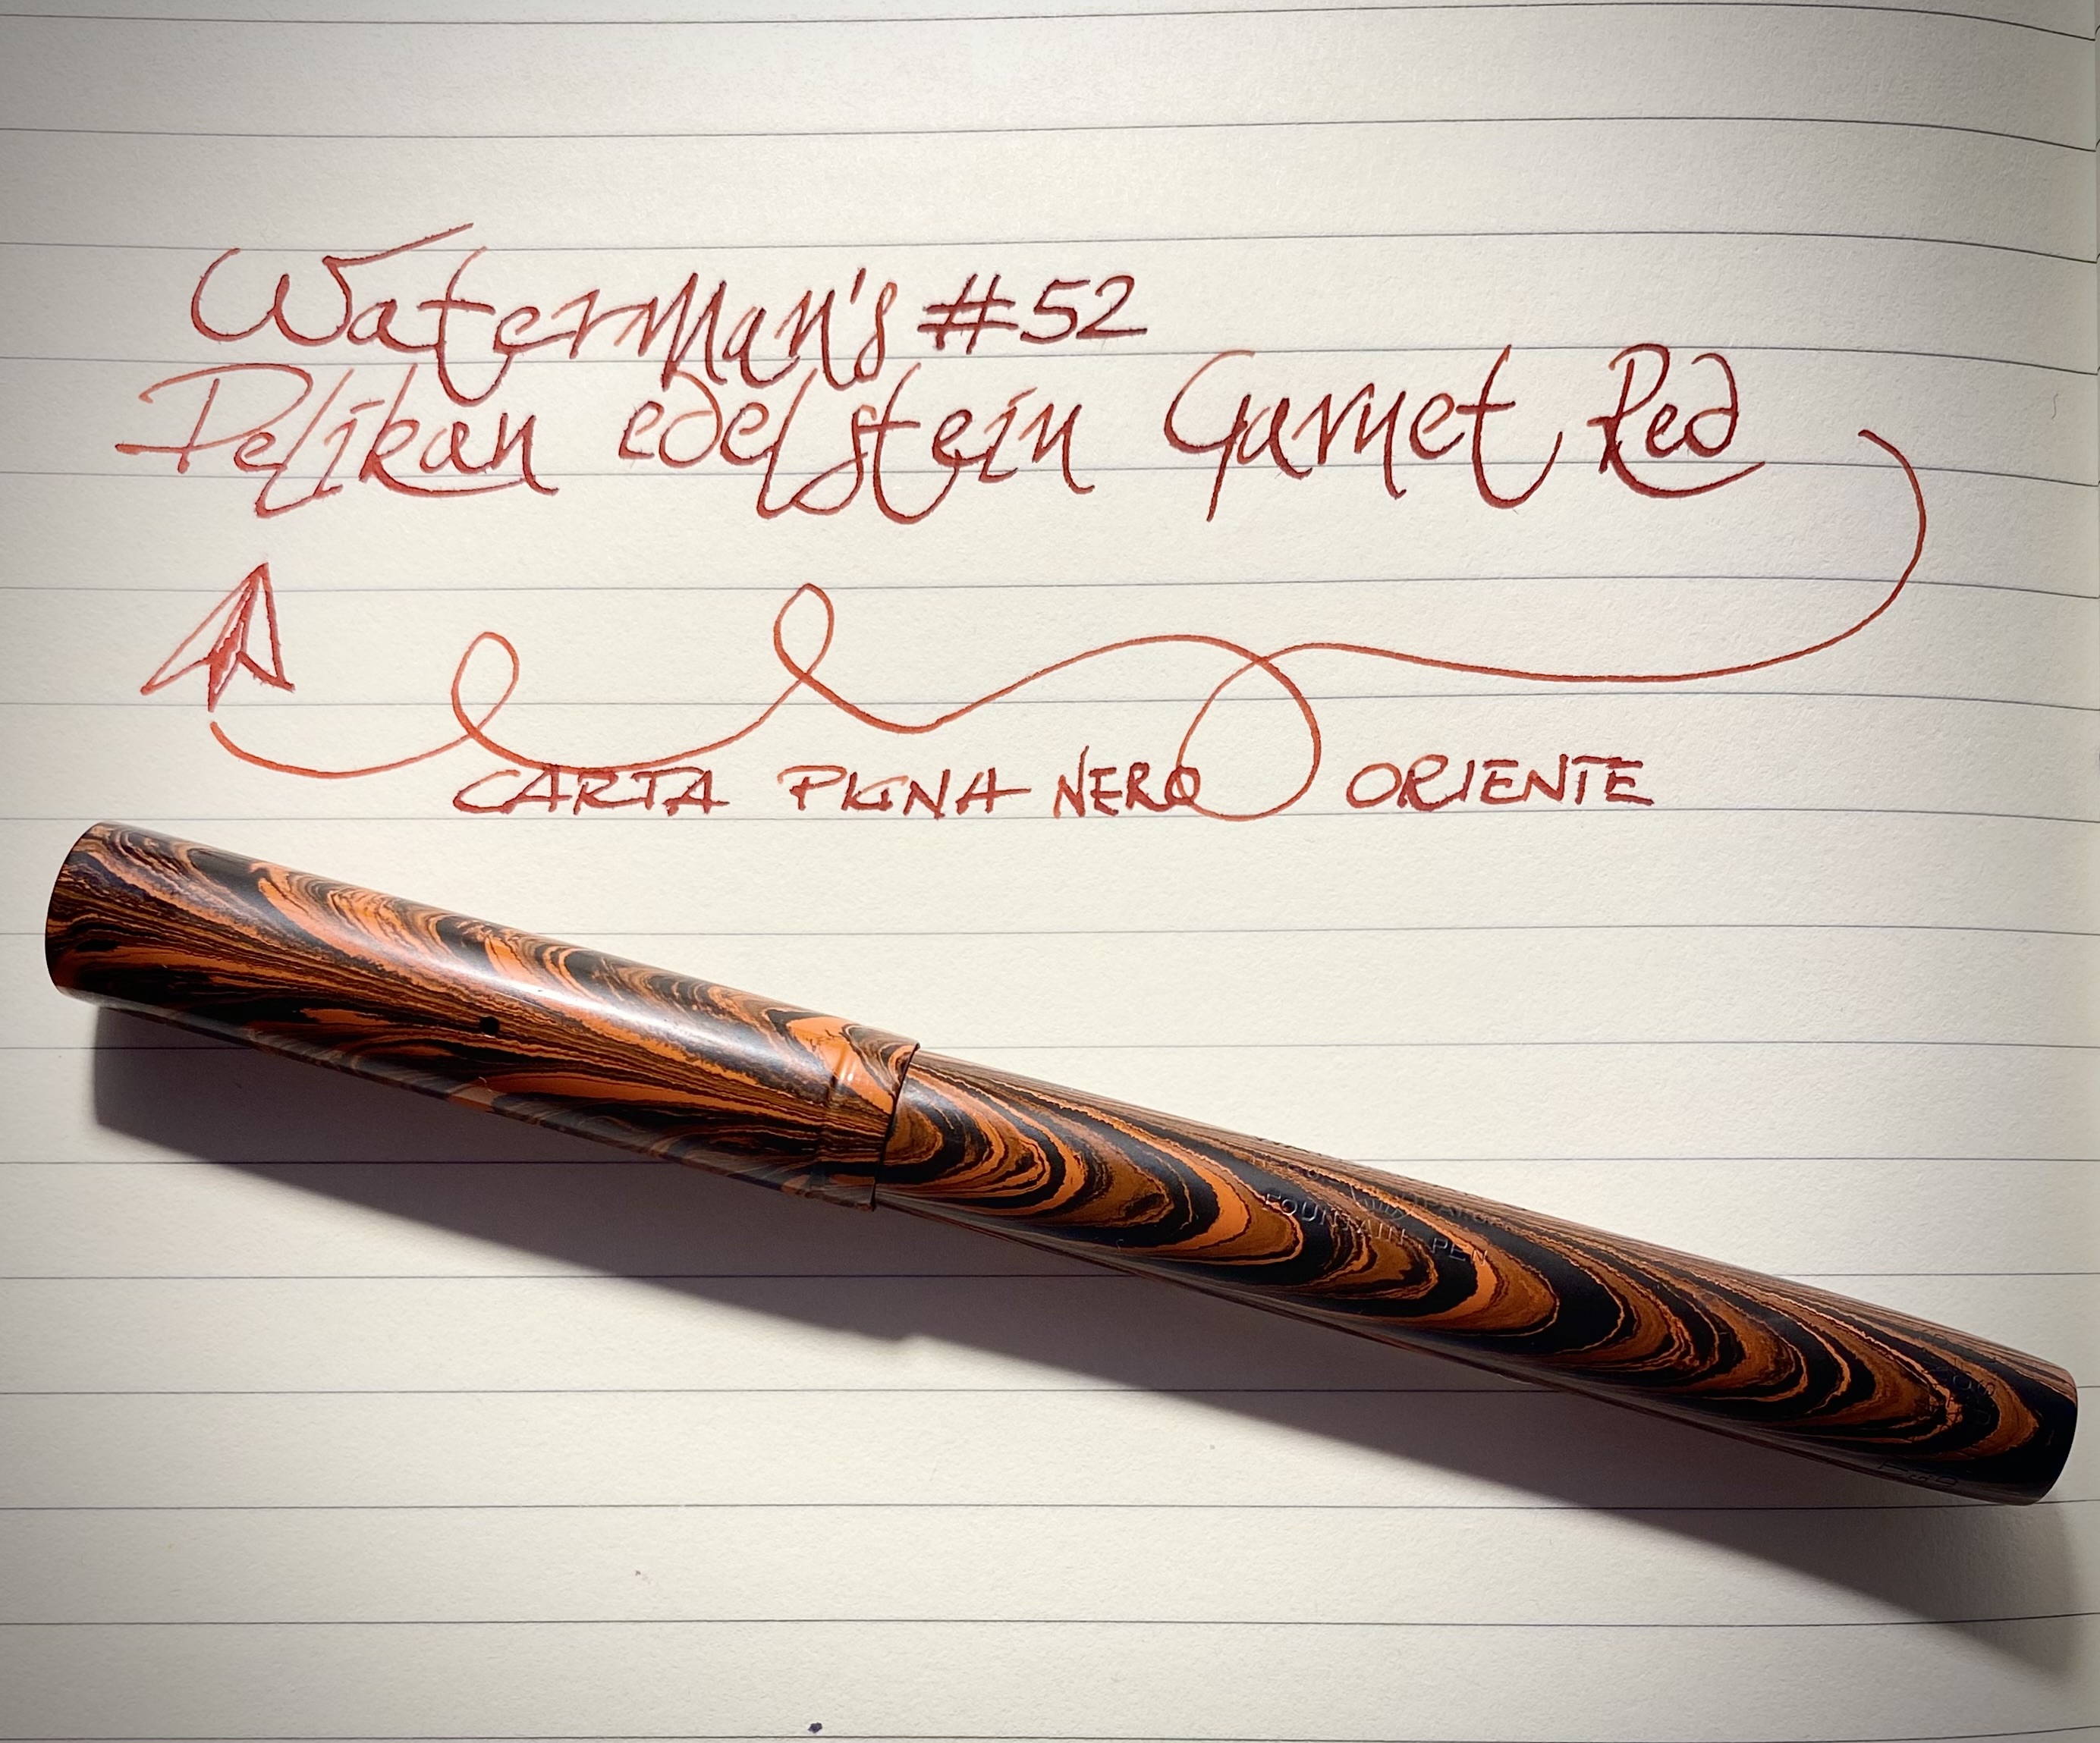 Waterman's #52
Pelikan edelstein Garnet Red
CARTA PIGNA NERO ORIENTE
FOUNTAIN PEN